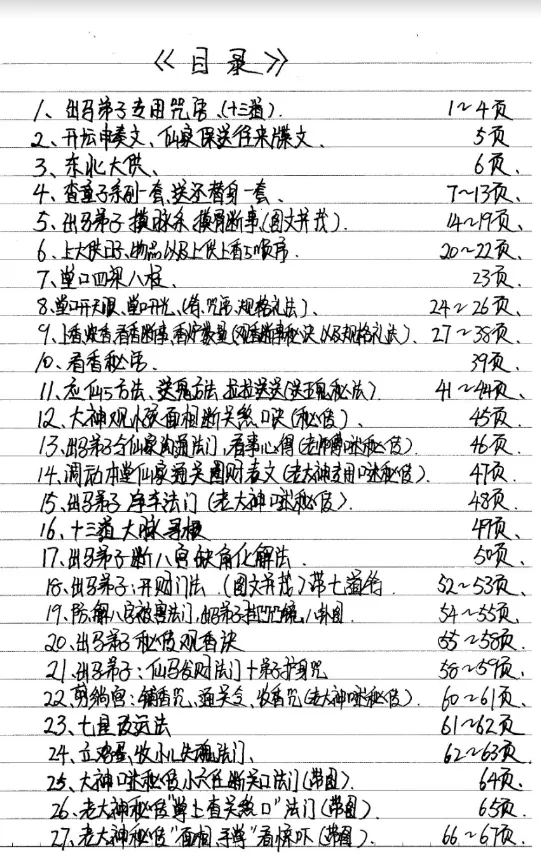 《目录》
1、出马弟子专用咒语(十三道). 1~4页
2、开坛申奏文、仙家保送往来牒文 5页
3、东北大供、 6页、
4、查童子系列一套、送还替身一套、 7~13页、
5、出马弟子摸脉杀、摸骨断事(图文并茂). 14~19页、
6、上大供日子、物品以及上供上香的顺序 20~22页、
7、堂口四梁八柱、 23页、
8、堂口开天眼、堂口开光、(符、咒语、规格礼法)、 24~26页、
9、上香、 看香断事、 27~38页、
10、看香秘法 39页、
11、应仙的方法、送鬼方法、 41~44页、
12、大神观小孩面相断关煞口诀(秘传)、 45页、
13、出马弟子合仙家沟通法门、看事心得(老师傅口述秘传) 46页、
14、调动本堂仙家通关图财表文(老大神 口述秘传) 47页、
15、出马弟子 法门(老大神口述秘传)、 48页、
16、十三道大脉 49页、
17、出马弟子断八字缺角化解法、 50页、
18、出马弟子:开财门法 (图文并茂)带七道符 52~53页、
19、 八字 法门、出马弟子 八卦图 54~55页、
20、出马弟子秘传观香诀 55~58页、
21、出马弟子:仙马发财法门十弟子护身咒 58~59页、
22、 铺香咒、通关令、收香咒(老大神口述秘传)、 60~61页、
23、七星改运法 61~62页
24、立鸡蛋、收小儿失魂法门、 62~63页、
25、大神口述秘传小六壬断关口法门(带图)、 64页、
26、老大神秘传“掌上查关煞口”法门(带图) 65页、
27、老大神秘传“面相、手掌”看惊吓(带图)、 66~67页、